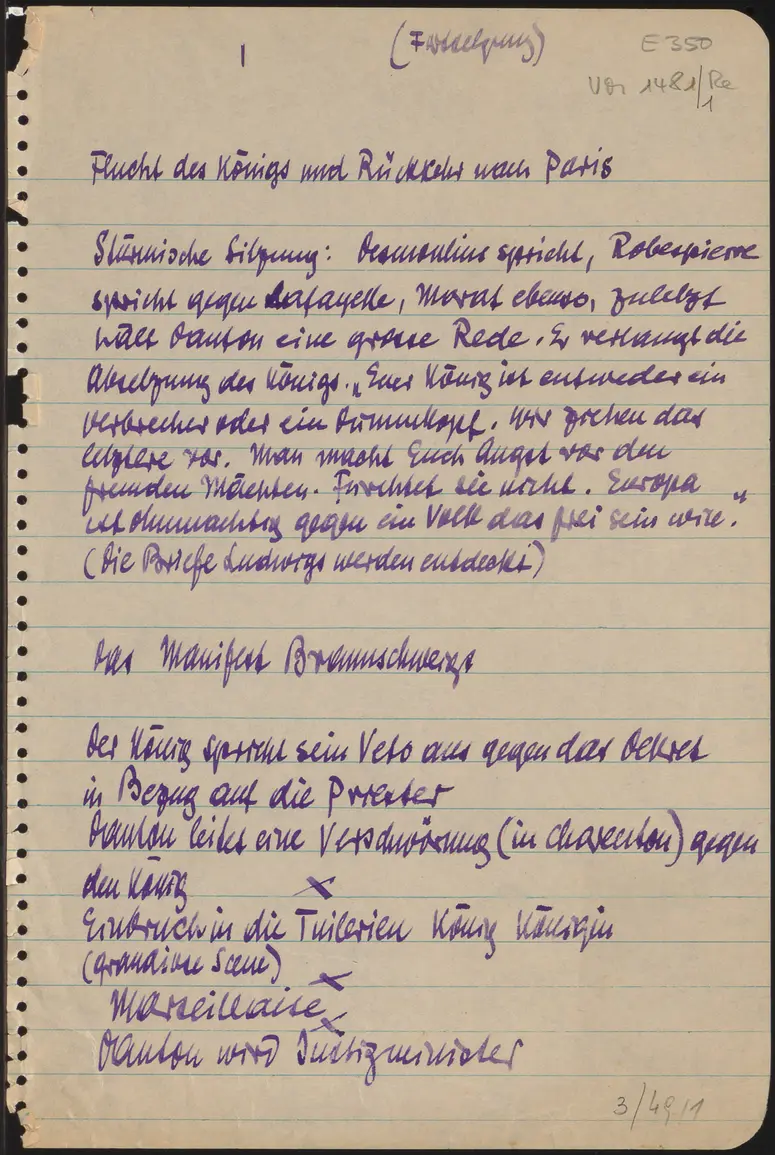 1
(Fortsetzung)
E 350
Vor 1481/Re
1
Flucht des Königs und Rückkehr nach Paris
Stürmische Sitzung: Desmoulins spricht, Robespierre
spricht gegen Lafayette, Marat ebenso, zuletzt
hält Danton eine grosse Rede. Er verlangt die
Absetzung des Königs. „Euer König ist entweder ein
Verbrecher oder ein Dummkopf. Wir ziehen das
letztere vor. Man macht Euch Angst vor den
fremden Mächten. Fürchtet sie nicht. Europa
ist ohnmächtig gegen ein Volk das frei sein will."
(Die Briefe Ludwigs werden entdeckt)
Das Manifest Braunschweigs
Der König spricht sein Veto aus gegen das Dekret
in Bezug auf die Priester
Danton leitet eine Verschwörung (in Charenton) gegen
den König
Einbruch in die Tuilerien König Königin
(grandiose Scene)
Marseillaise
Danton wird Justizminister
3/49/1